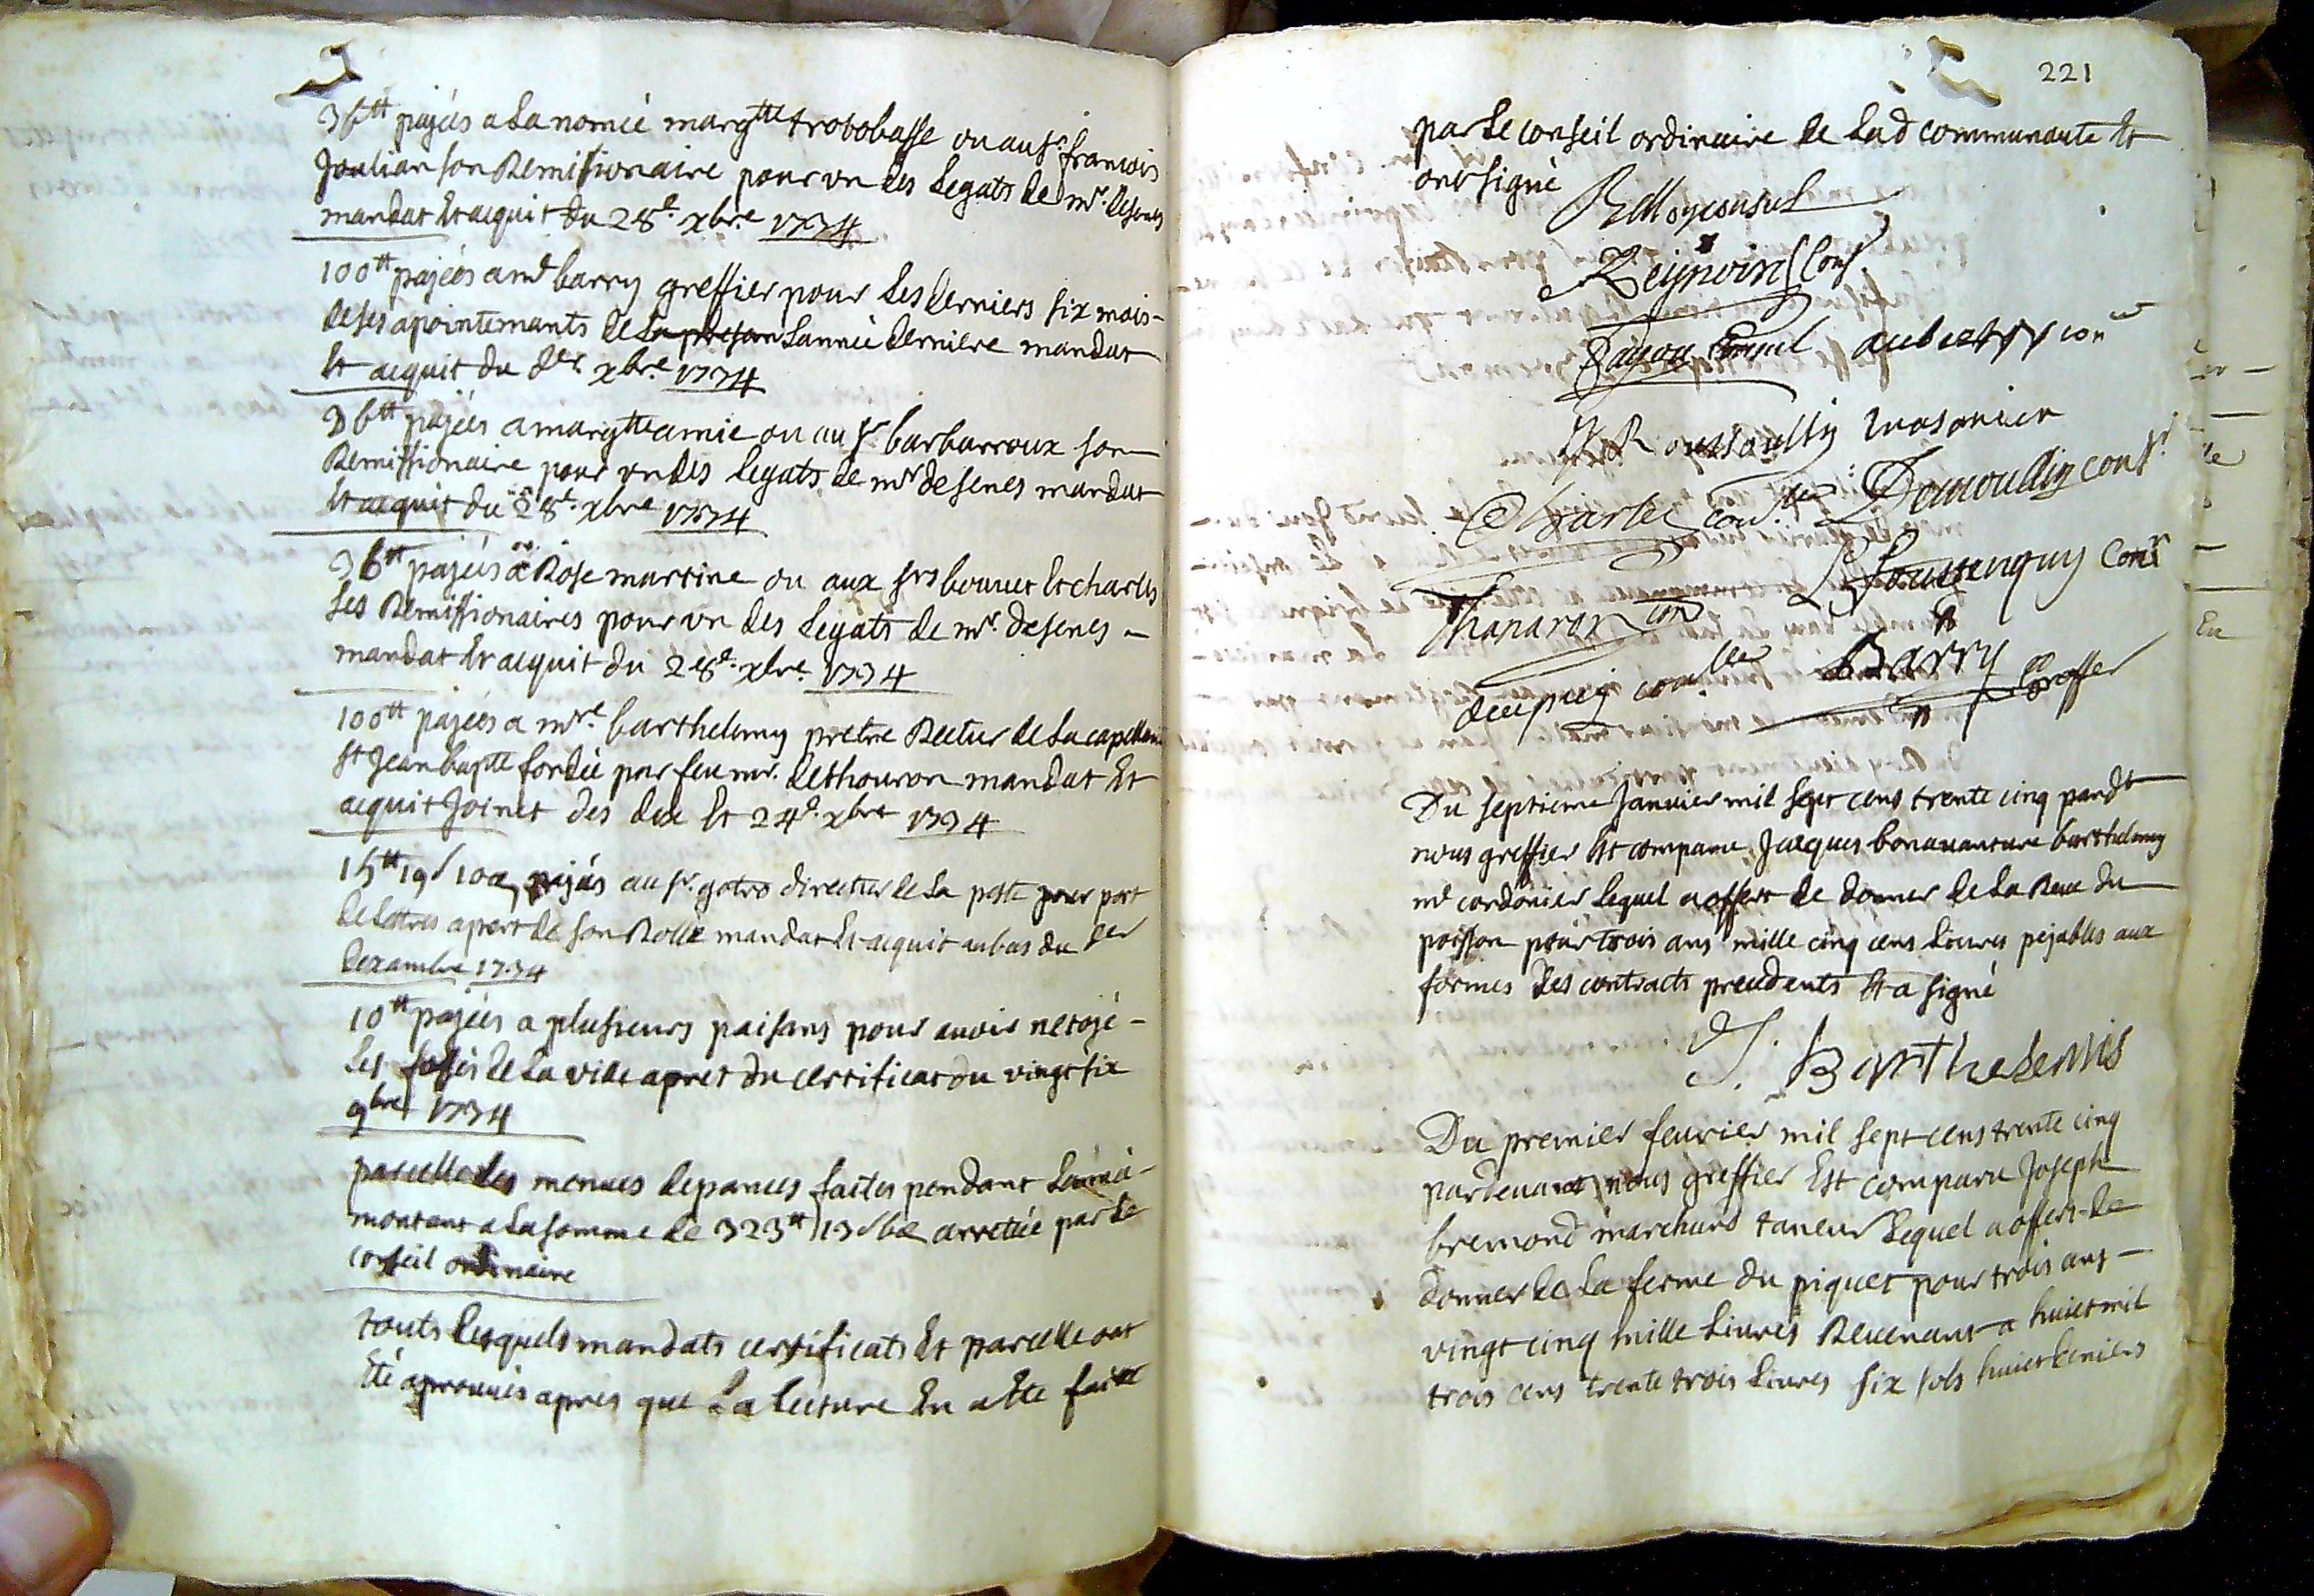 36tt pajées a La nomée margtte trotobasse ou au sr. francois
Joulian son Remissionaire pour un des Legats de mr. desenes
mandat Et acquit du 28e. xbre 1734
100tt pajées a me barry greffier pour Les derniers six mois
de ses apointemants de La presan Lannée derniere mandat
Et acquit du der. xbre. 1734
36tt pajées a margtte amie ou au sr. barbarroux son
Remissionaire pour un des Legats de mr desenes mandat
Et acquit du 28e. xbre 1734
36tt pajées a Rose martine ou aux srs bouuet Et charles
ses Remissionaires pour un des Legats de mr. desenes
mandat Et acquit du 28e. xbre. 1734
100tt pajées a mre. barthelemy pretre Recteur de La capellanie
st Jean bapte fondée par feu mr. dethouron mandat Et
acquit Joinct des dix Et 24e. xbre 1734
15tt 19s 10d pajés au sr. gotro directeur de La poste pour port
de Lettres apert de son Rolle mandat Et acquit au bas du der
dexambre 1734
10tt pajées a plusieurs paisans pour auoir netojé
Les fossés de La ville apret du certificat du vingt six
9bre 1734
parcelle des menues depances faites pendant Lannée
montant a La somme de 323tt 13s 6d arretée par Le
conseil ordinaire
touts Lesquels mandats certificats Et parcelle ont
Eté aprouués apres que La Lecture En a Eté faite
221
par Le conseil ordinaire de Lad communauté Et
ont signé
Reynoird Cons
Fayou Consul aubert
Roussoullin tresorier
Charles con.ller Domoullin consr.
Chaparon con Foussenquy Consr
dupuy con.ller Barry Greffier
Du septieme Januier mil sept cens trente cinq pardt
nous greffier Est comparu Jacques bonauanture barthelemy
me cordonier Lequel a offert de donner de La Reue du
poisson pour trois ans mille cinq cens Liures pejables aux
formes des contracts precedents Et a signé
J. Barthelemis
Du premier feurier mil sept cens trente cinq
pardeuant nous greffier Est comparu Joseph
bremond marchand taneur Lequel a offert de
donner de La ferme du piquet pour trois ans
vingt cinq mille Liures Reuenant a huict mil
trois cens trente trois Liures six sols huict deniers